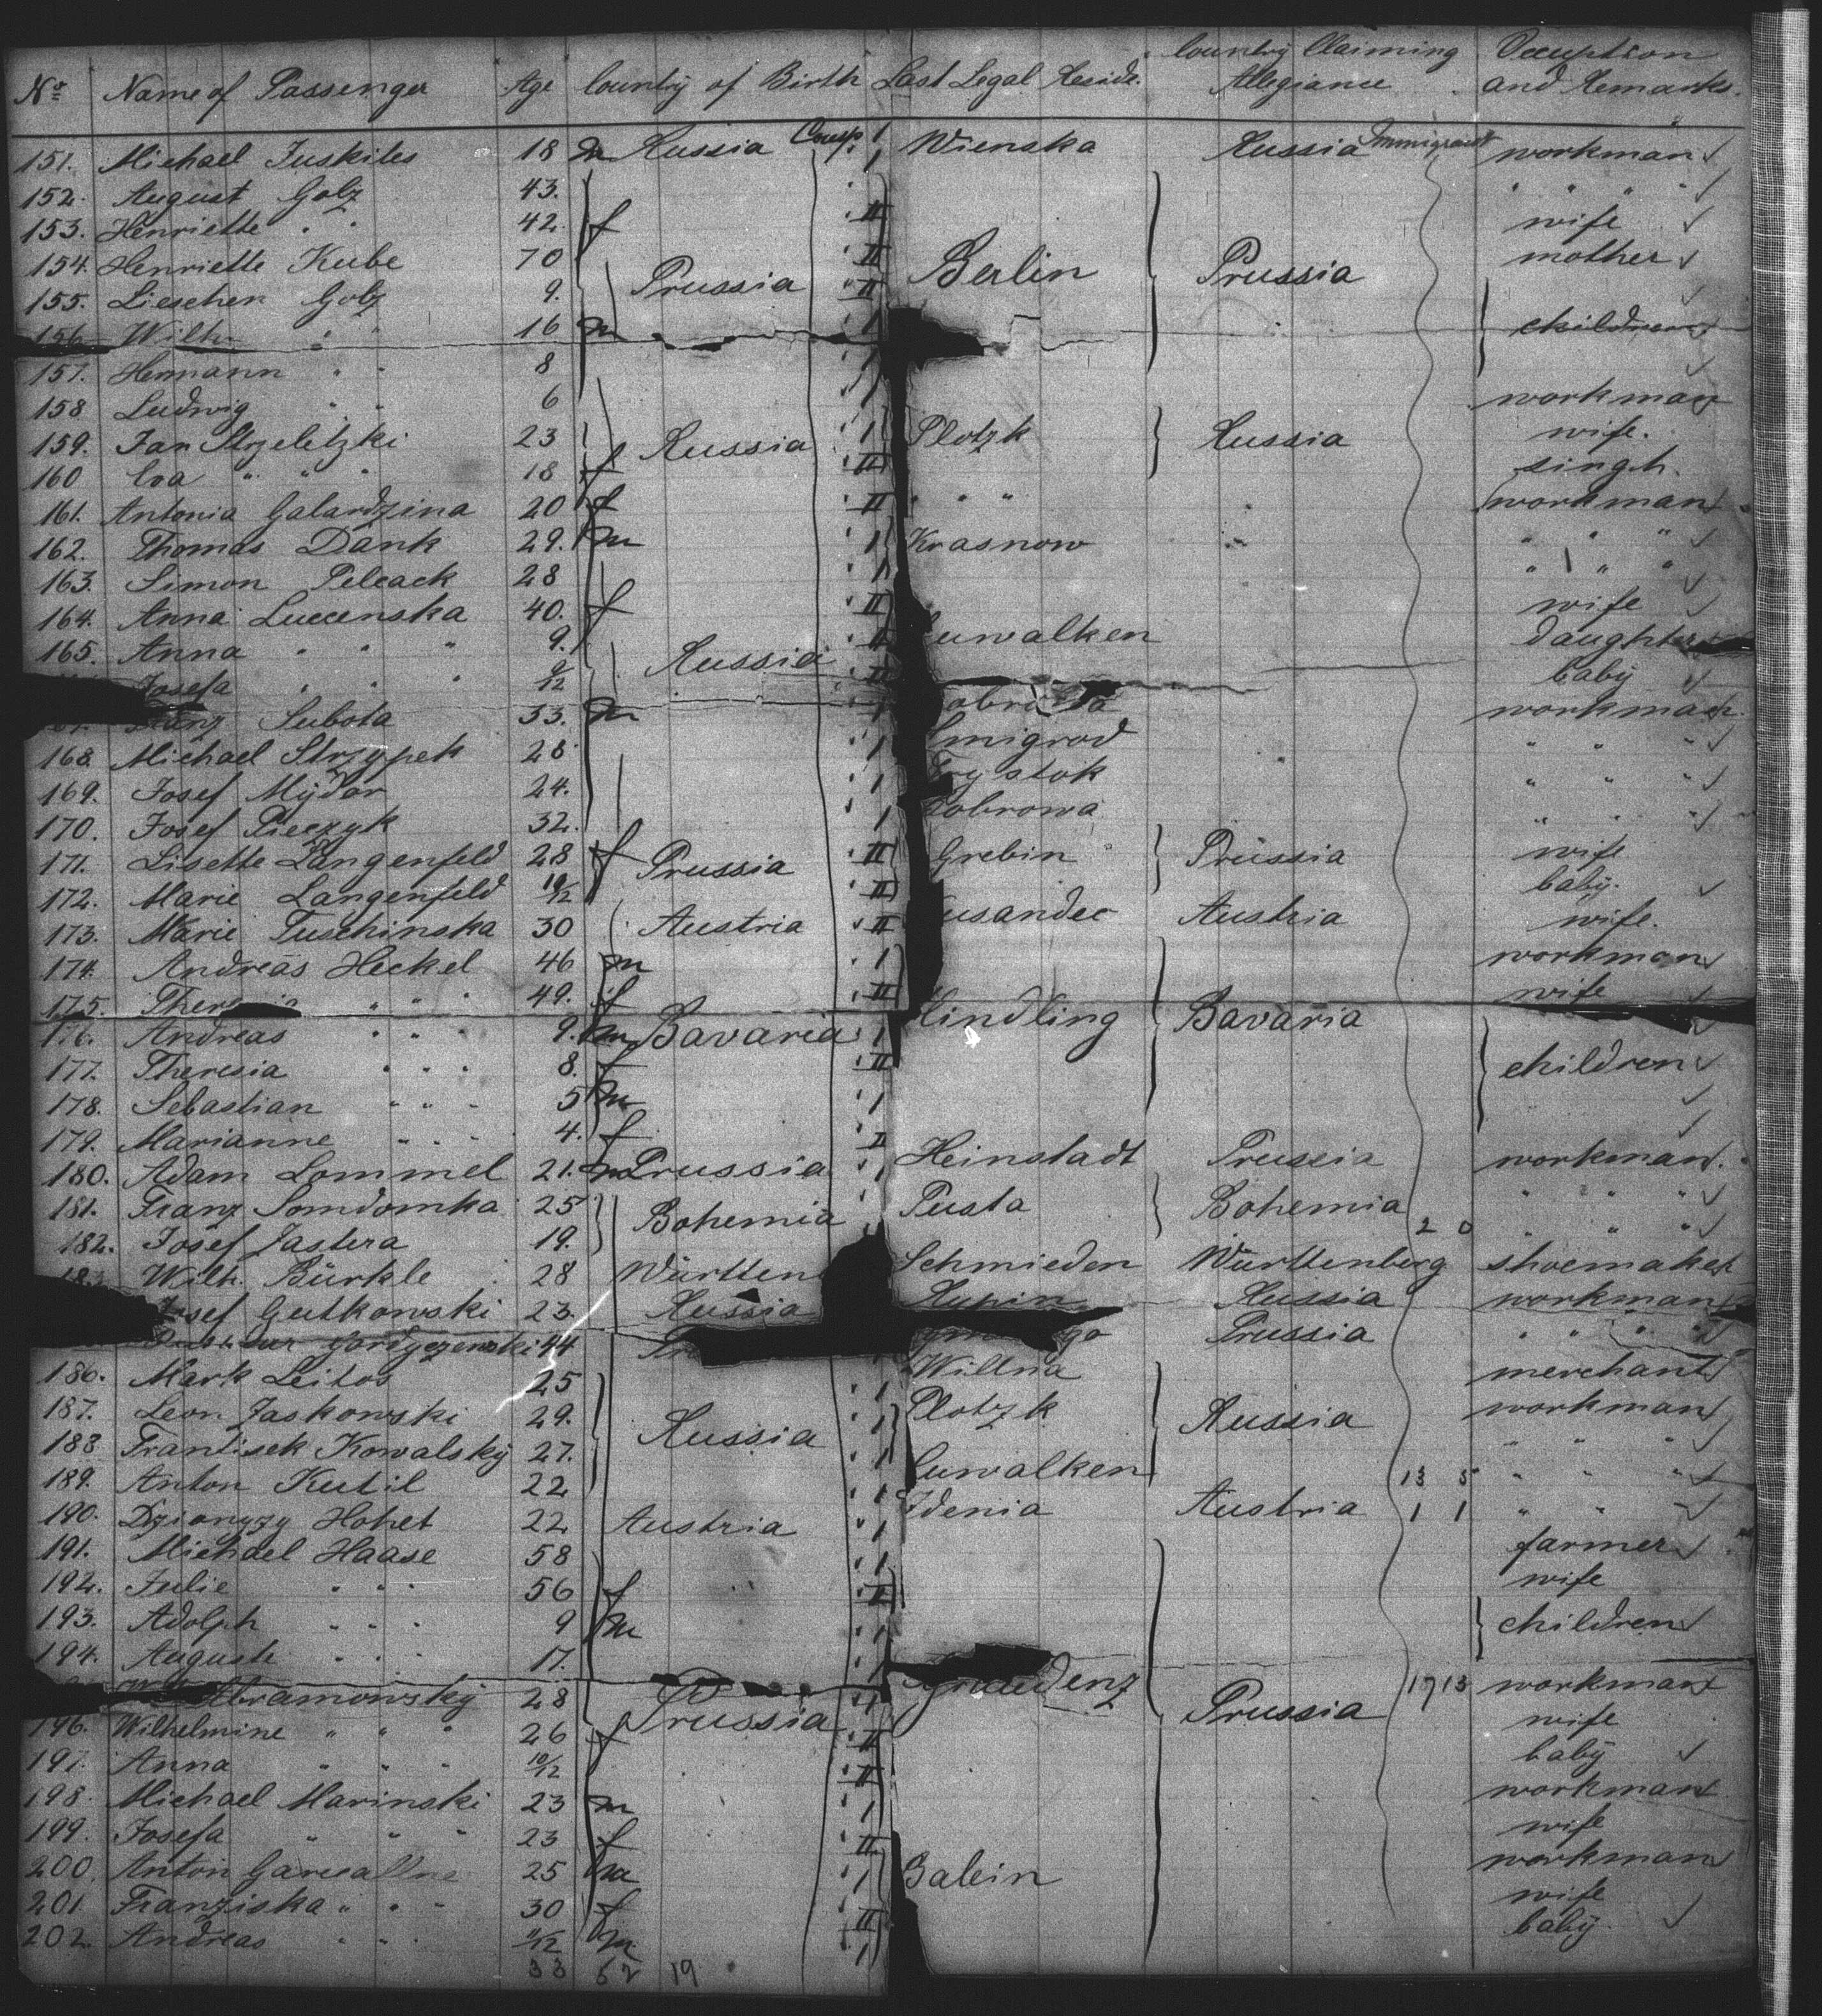 No. Name of Passenger Age Country of Birth Last Legal Reside. Country Claiming Allegiance Occuption and Remarks.
151. Michael Juskites 18 m Russia Wienska Russia Immigrant workman
152. August Golz 43. " " " "
153. Henriette " " 42. f wife
154. Henriette Kube 70 Prussia Berlin Prussia mother
155. Lieschen Golz 9.
156. Wilh. " 16 m children
157. Hermann " " 8
158 Ludwig " " 6 workman
159. Jan Strzelitzki 23 Russia Plotzk Russia wife.
160 Eva " " " 18 f singh.
161. Antonia Galardzina 20 f " " " workman
162. Thomas Dank 29. m Krasnow " " " "
163. Simon Pelcack 28 " " "
164. Anna Luccenska 40. f wife
165. Anna " " " 9. Russia uwalken daughter
Josefa " " " baby
Subota 33. m workman
168. Michael Strzypek 28 migrod " " "
169. Josef Mÿdor 24. rystok " " "
170. Josef Pieczyk 32. obrowa " " "
171. Lisette Langenfeld 28 f Prussia Grebin Prussia wife
172. Marie Langenfeld baby.
173. Marie Tuschinska 30 Austria usandec Austria wife.
174. Andreas Heckel 46 m workman
175. Ther 49. f wife
176. Andreas " " " 9. m Bavaria indling Bavaria
177. Theresia " " " 8. f children
178. Sebastian " " " 5 m
179. Marianne " " " 4. f
180. Adam Lommel 21. m Prussia Heinstadt Prussia workman.
181. Franz Somdomka 25 Bohemia Pusta Bohemia " " "
182. Josef Jastera 19. 2 0 " " "
Wilh. Bürkle 28 Württen Schmieden Württenberg shoemaker
sef Gutkowski 23. Russia Rupin Russia workman
44 Prussia " " " "
186. Mark Leitos 25 Willna merchant
187. Leon Jaskowski 29. Russia Plotzk Russia workman
188 Frantisek Kowalskÿ 27. " " "
189. Anton Kutil 22 uwalken 13 5 " " "
190. Dzionyzy Hohet 22 Austria Zdenia Austria 1 1 " " "
191. Michael Haase 58 farmer
192. Julie " " " 56 f wife
193. Adolph " " " 9 m children
194. Auguste " " " 17.
Abramowskÿ 28 Prussia denz Prussia 17 13 workman
196. Wilhelmine " " " 26 f wife
197. Anna " " " 10/12 baby
198. Michael Marinski 23 m workman
199. Josefa " " " 23 f wife
200. Anton 25 m Balein workman
201 Franziska " " " 30 f wife
202. Andreas " " " 11/12 m baby.
33 52 19